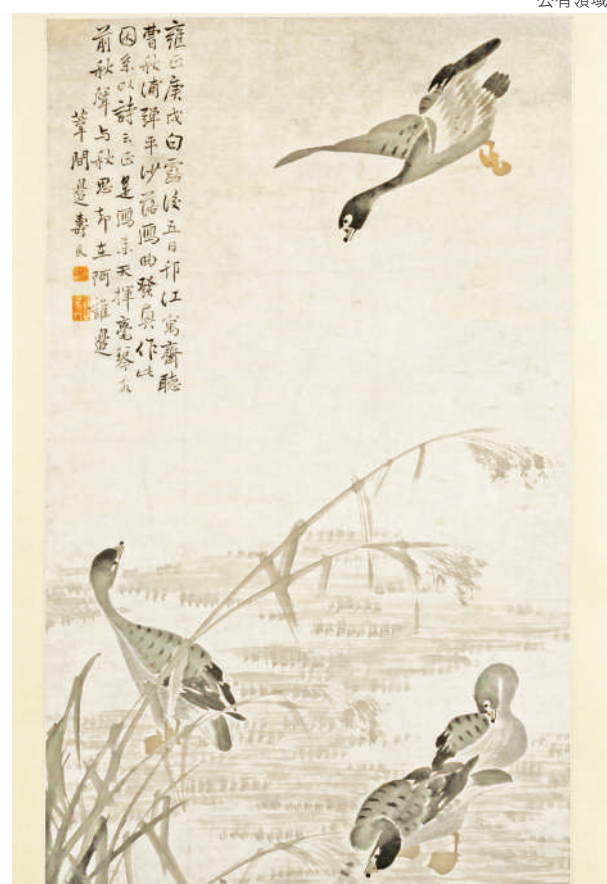 公有領域
雍正庚戌白露後五日邗江寓齋聽
曹秋浦彈平沙落鴈曲發興作此
因系以詩云正是鴈来天揮毫琴
前秋聲与秋思却在阿誰邊
葦間邊壽民